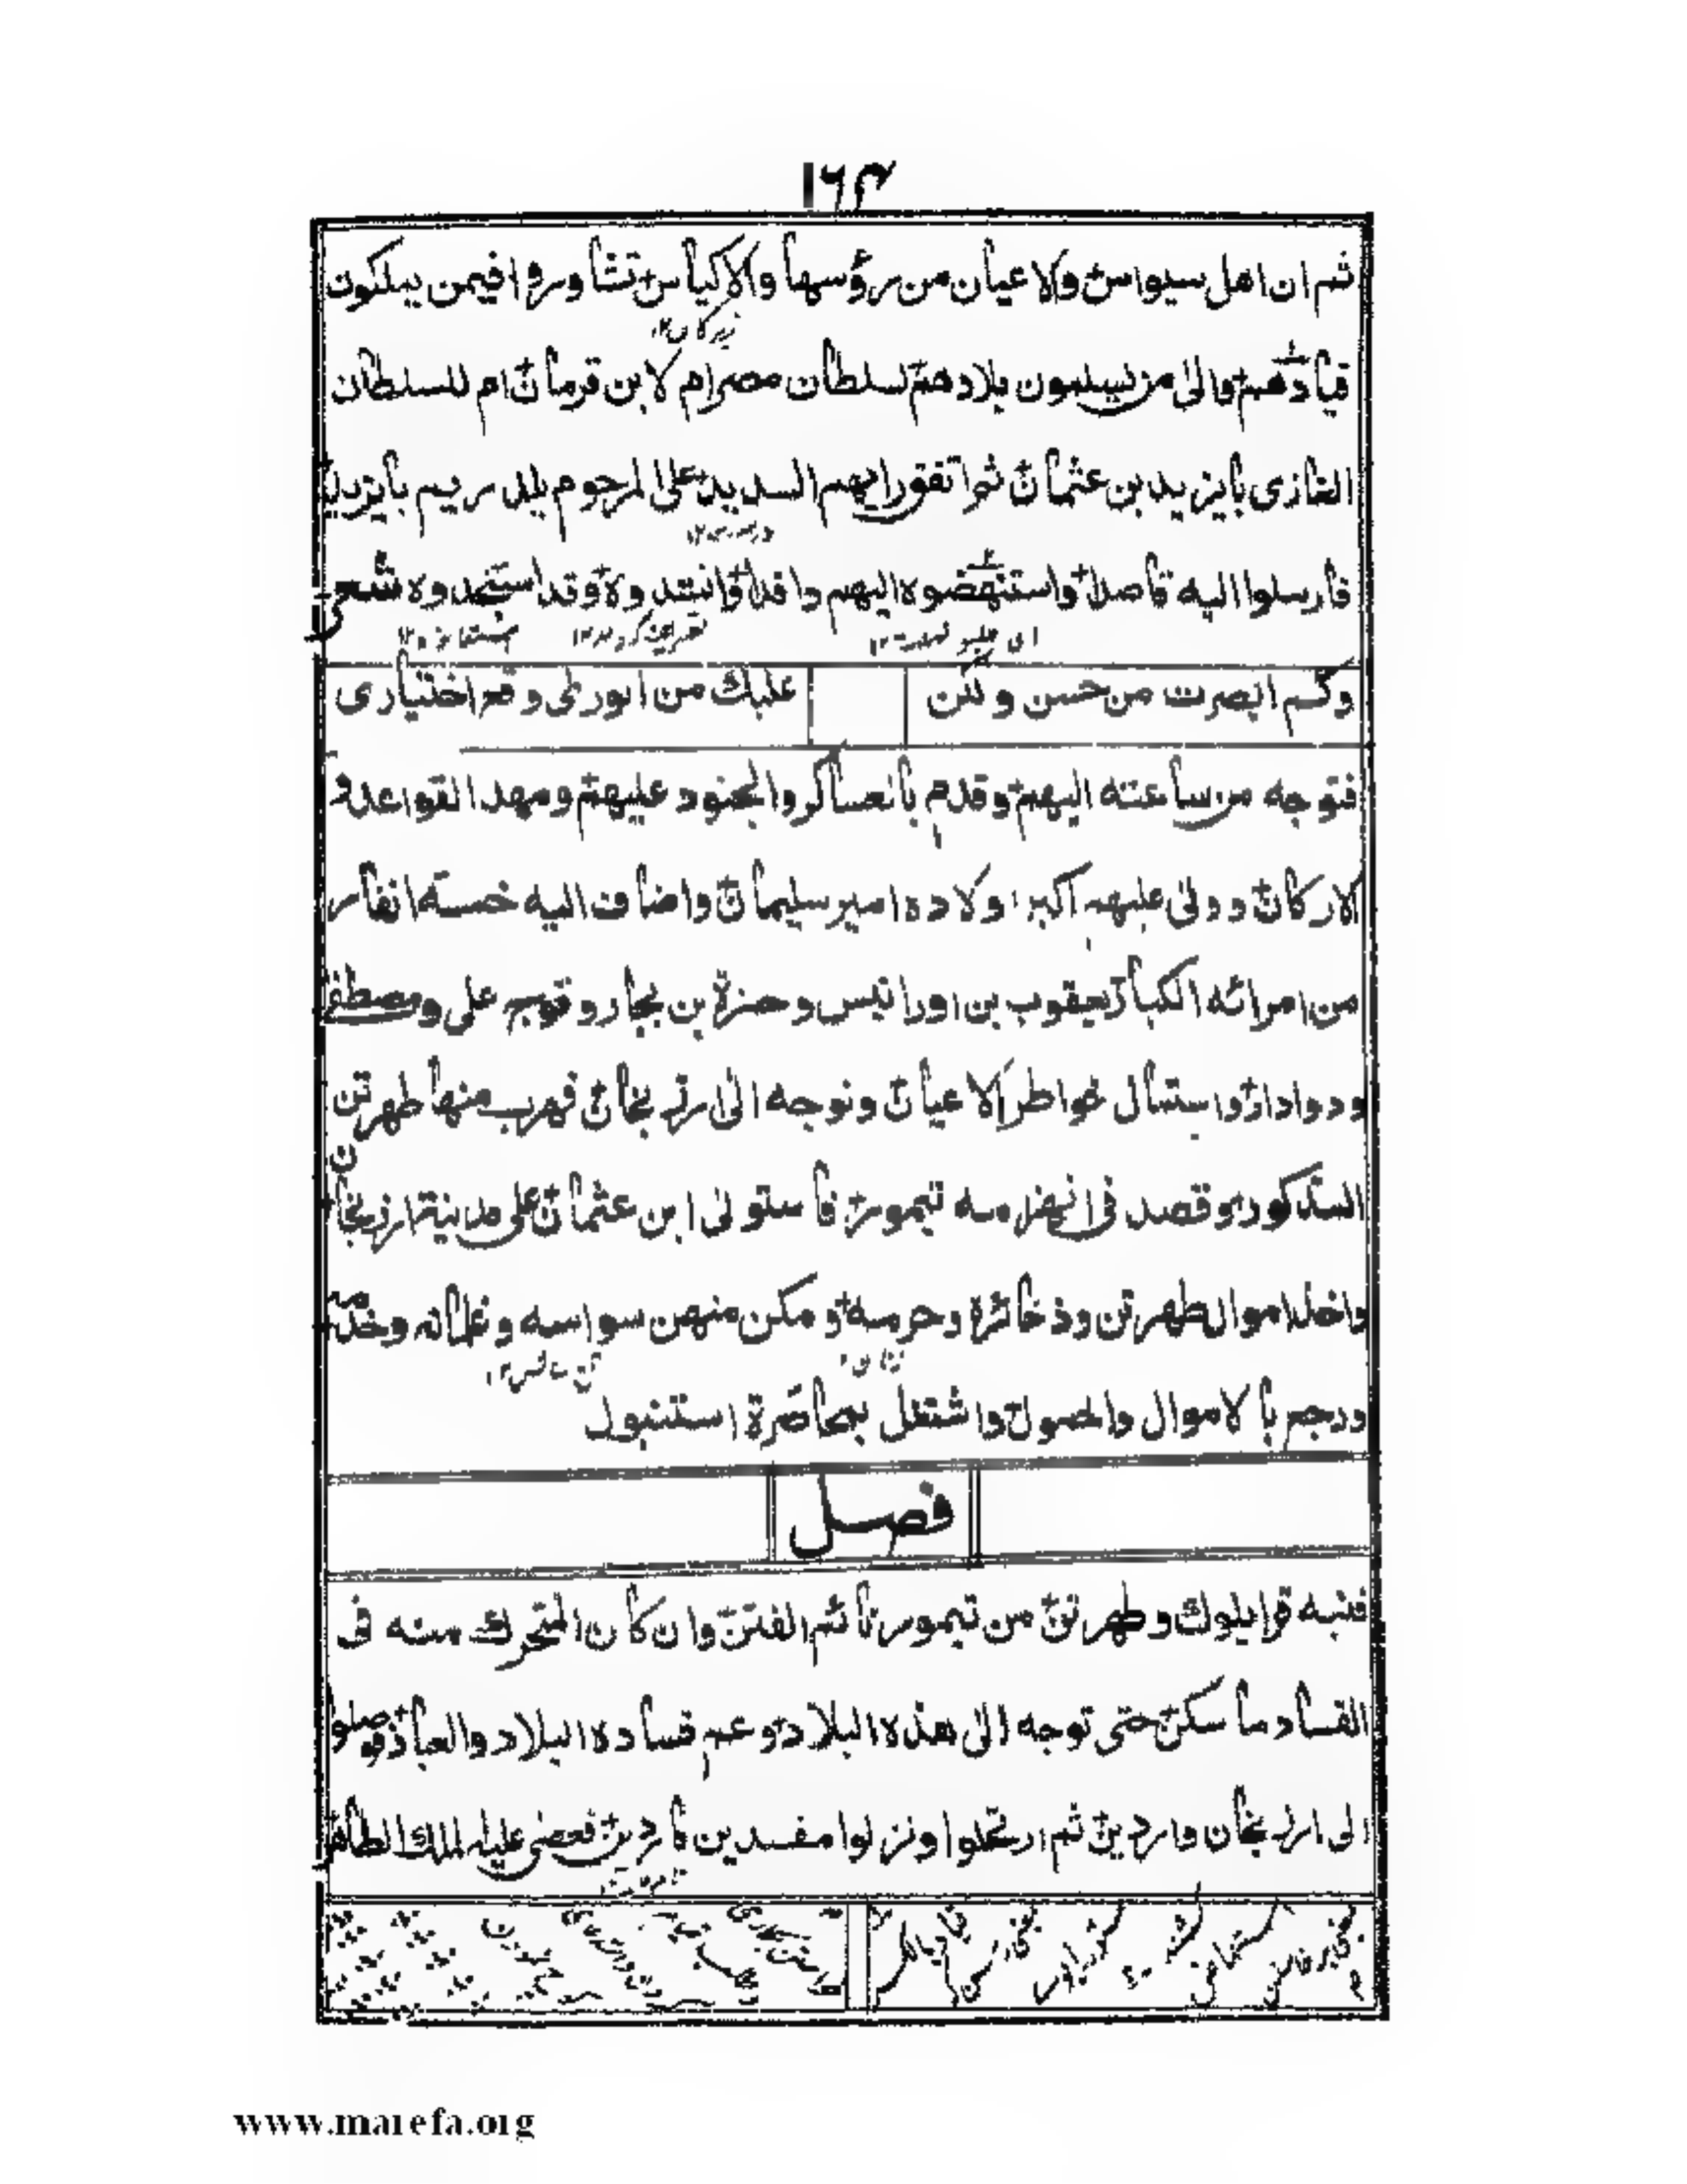 ۱۶۴
ثم ان اهل سيواس والاعيان من رؤسها والاكياس تشاوروا فيمن يملكون
قيادهم والى من يسلمون بلادهم لسلطان مصر ام لابن قرمان ام للسلطان
الغازى بايزيد بن عثمان ثم اتفق رايهم السديد على المرحوم يلدريم بايزيد
فارسلوا اليه قاصدا واستنهضوه اليهم وافدا وانتدوه وقد استنجدوه شعر
وكم ابصرت من حسن ولكن عليك من الورى وقع اختيارى
فتوجه من ساعته اليهم وقدم بالعساكر والجنود عليهم ومهد القواعد و
الاركان وولى عليهم اكبر اولاده امير سليمان واضاف اليه خمسة انفار
من امرائه الكبار يعقوب بن اورانيس وحمزة بن بجار وقوج على ومصطفى
ودوادار واستمال خواطر الاعيان وتوجه الى ارزنجان فهرب منها طهرتن
المذكور وقصد فى انهزامه تيمور فاستولى ابن عثمان على مدينة ارزنجان
واخذ اموال طهرتن وذخائره وحرمه ومكن منهن سواسه وغلمانه وخدمه
ورجع بالاموال والحمول واشتغل بمحاصرة استنبول
فصل
فنبه قرايلوك وطهرتن من تيمور نائم الفتن وان كان المتحرك منه فى
الفساد ما سكن حتى توجه الى هذه البلاد وعم فساده البلاد والعباد فوصلوا
الى ارزنجان وماردين ثم ارتحلوا ونزلوا مفسدين ماردين فعصى عليه الملك الطاهر
www.marefa.org